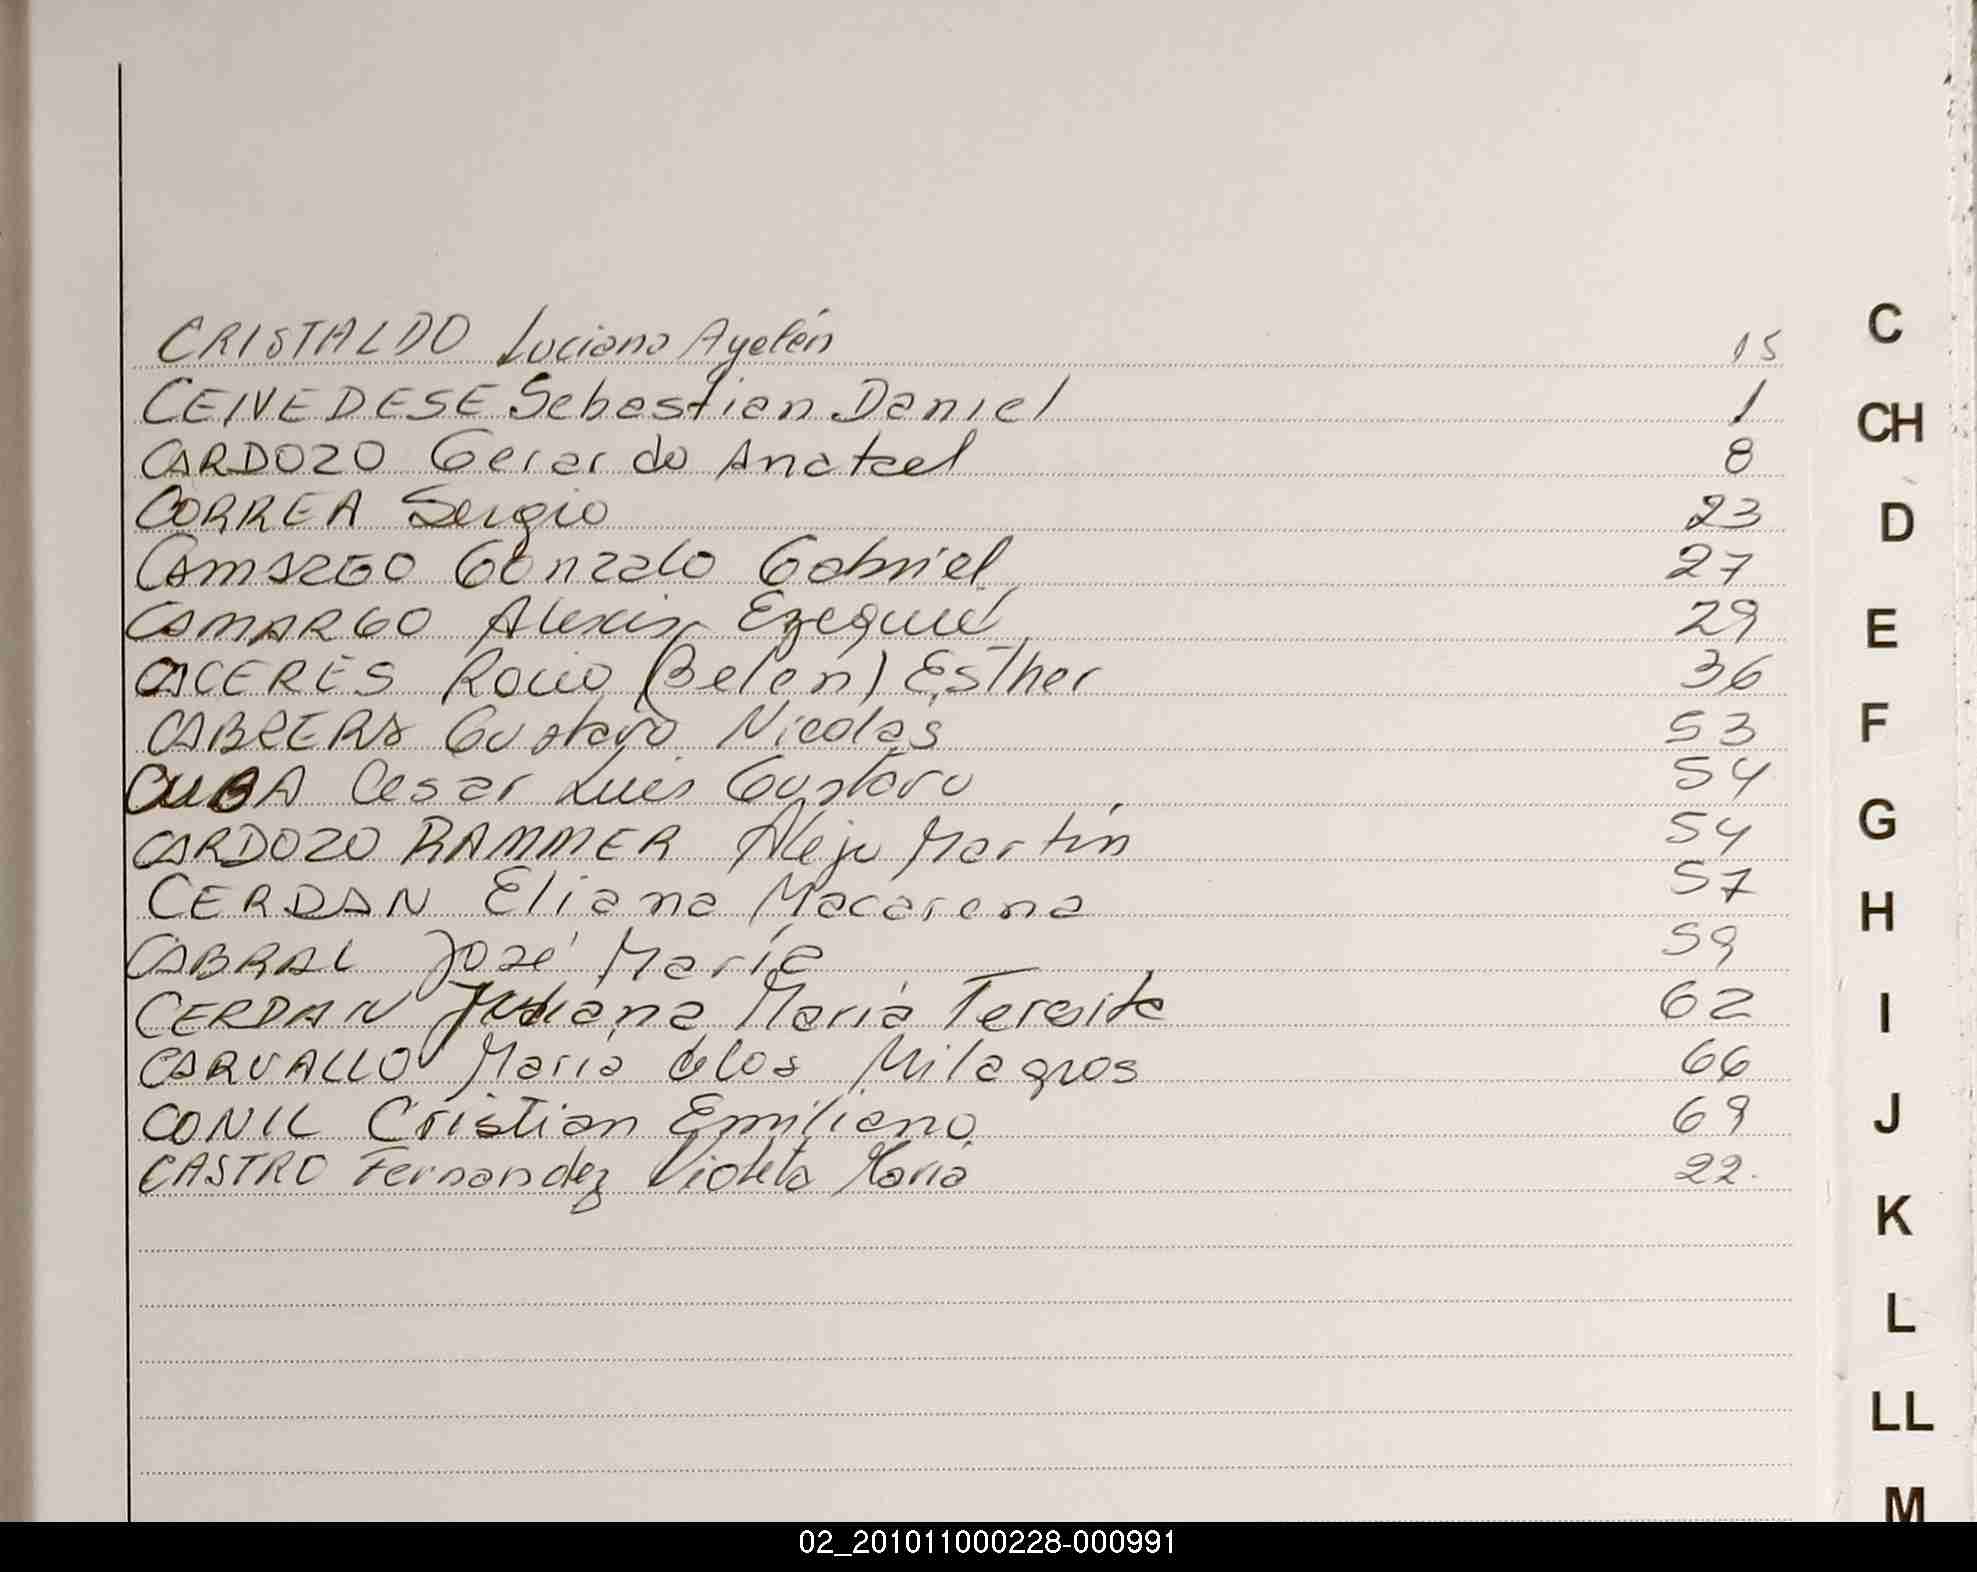 CRISTALDO Luciana Ayelén 15
CEIVEDESE Sebastian Daniel 1
CARDOZO Gerardo Anatael 8
CORREA Sergio 23
CAMARGO Gonzalo Gabriel 27
CAMARGO Alexis Ezequiel 29
CACERES Rocio (Belen) Esther 36
CABRERA Gustavo Nicolas 53
CUBA Cesar Luis Gustavo 54
CARDOZO RAMMER Alejo Martín 54
CERDAN Eliana Macarena 57
CABRAL José María 59
CERDAN Juliana Maria Teresita 62
CARVALLO Maria de los Milagros 66
CONIL Cristian Emiliano 69
CASTRO Fernandez Violeta Maria 22.
C
CH
D
E
F
G
H
I
J
K
L
LL
M
02_201011000228-000991